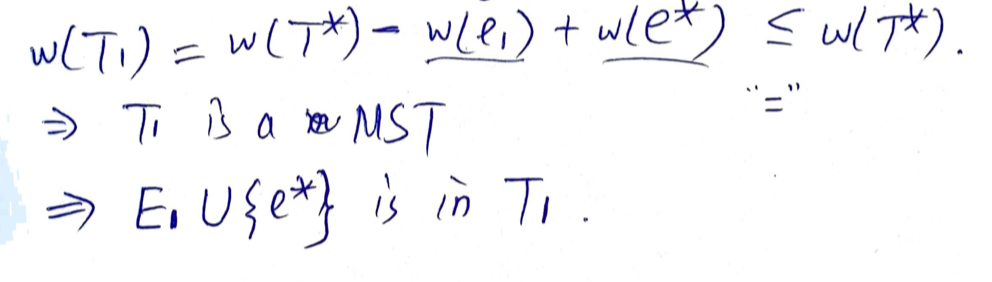 w(T₁) = w(T*) - w(e₁) + w(e*) ≤ w(T*).
"="
⇒ T₁ is a MST
⇒ E₁ ∪ {e*} is in T₁.